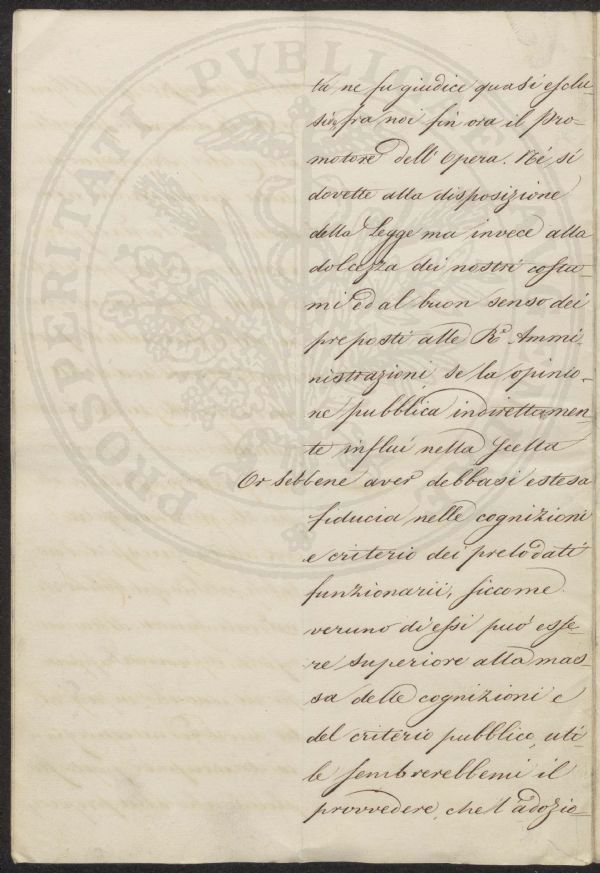 PROSPERITATI PUBLICAE
tà ne fu giudice quasi esclu-
sivo fra noi fin ora il Pro-
motore dell'Opera. Né si
dovette alla disposizione
della Legge ma invece alla
dolcezza dei nostri costu-
mi ed al buon senso dei
preposti alle Re Ammi-
nistrazioni, se la opinio-
ne pubblica indirettamen-
te influì nella scelta
Or sebbene aver debbasi estesa
fiducia nelle cognizioni
e criterio dei prelodati
funzionarii, siccome
veruno di essi può esse-
re superiore alla mas-
sa delle cognizioni e
del criterio pubblico, uti-
le sembrerebbemi il
provvedere, che l'adozio-